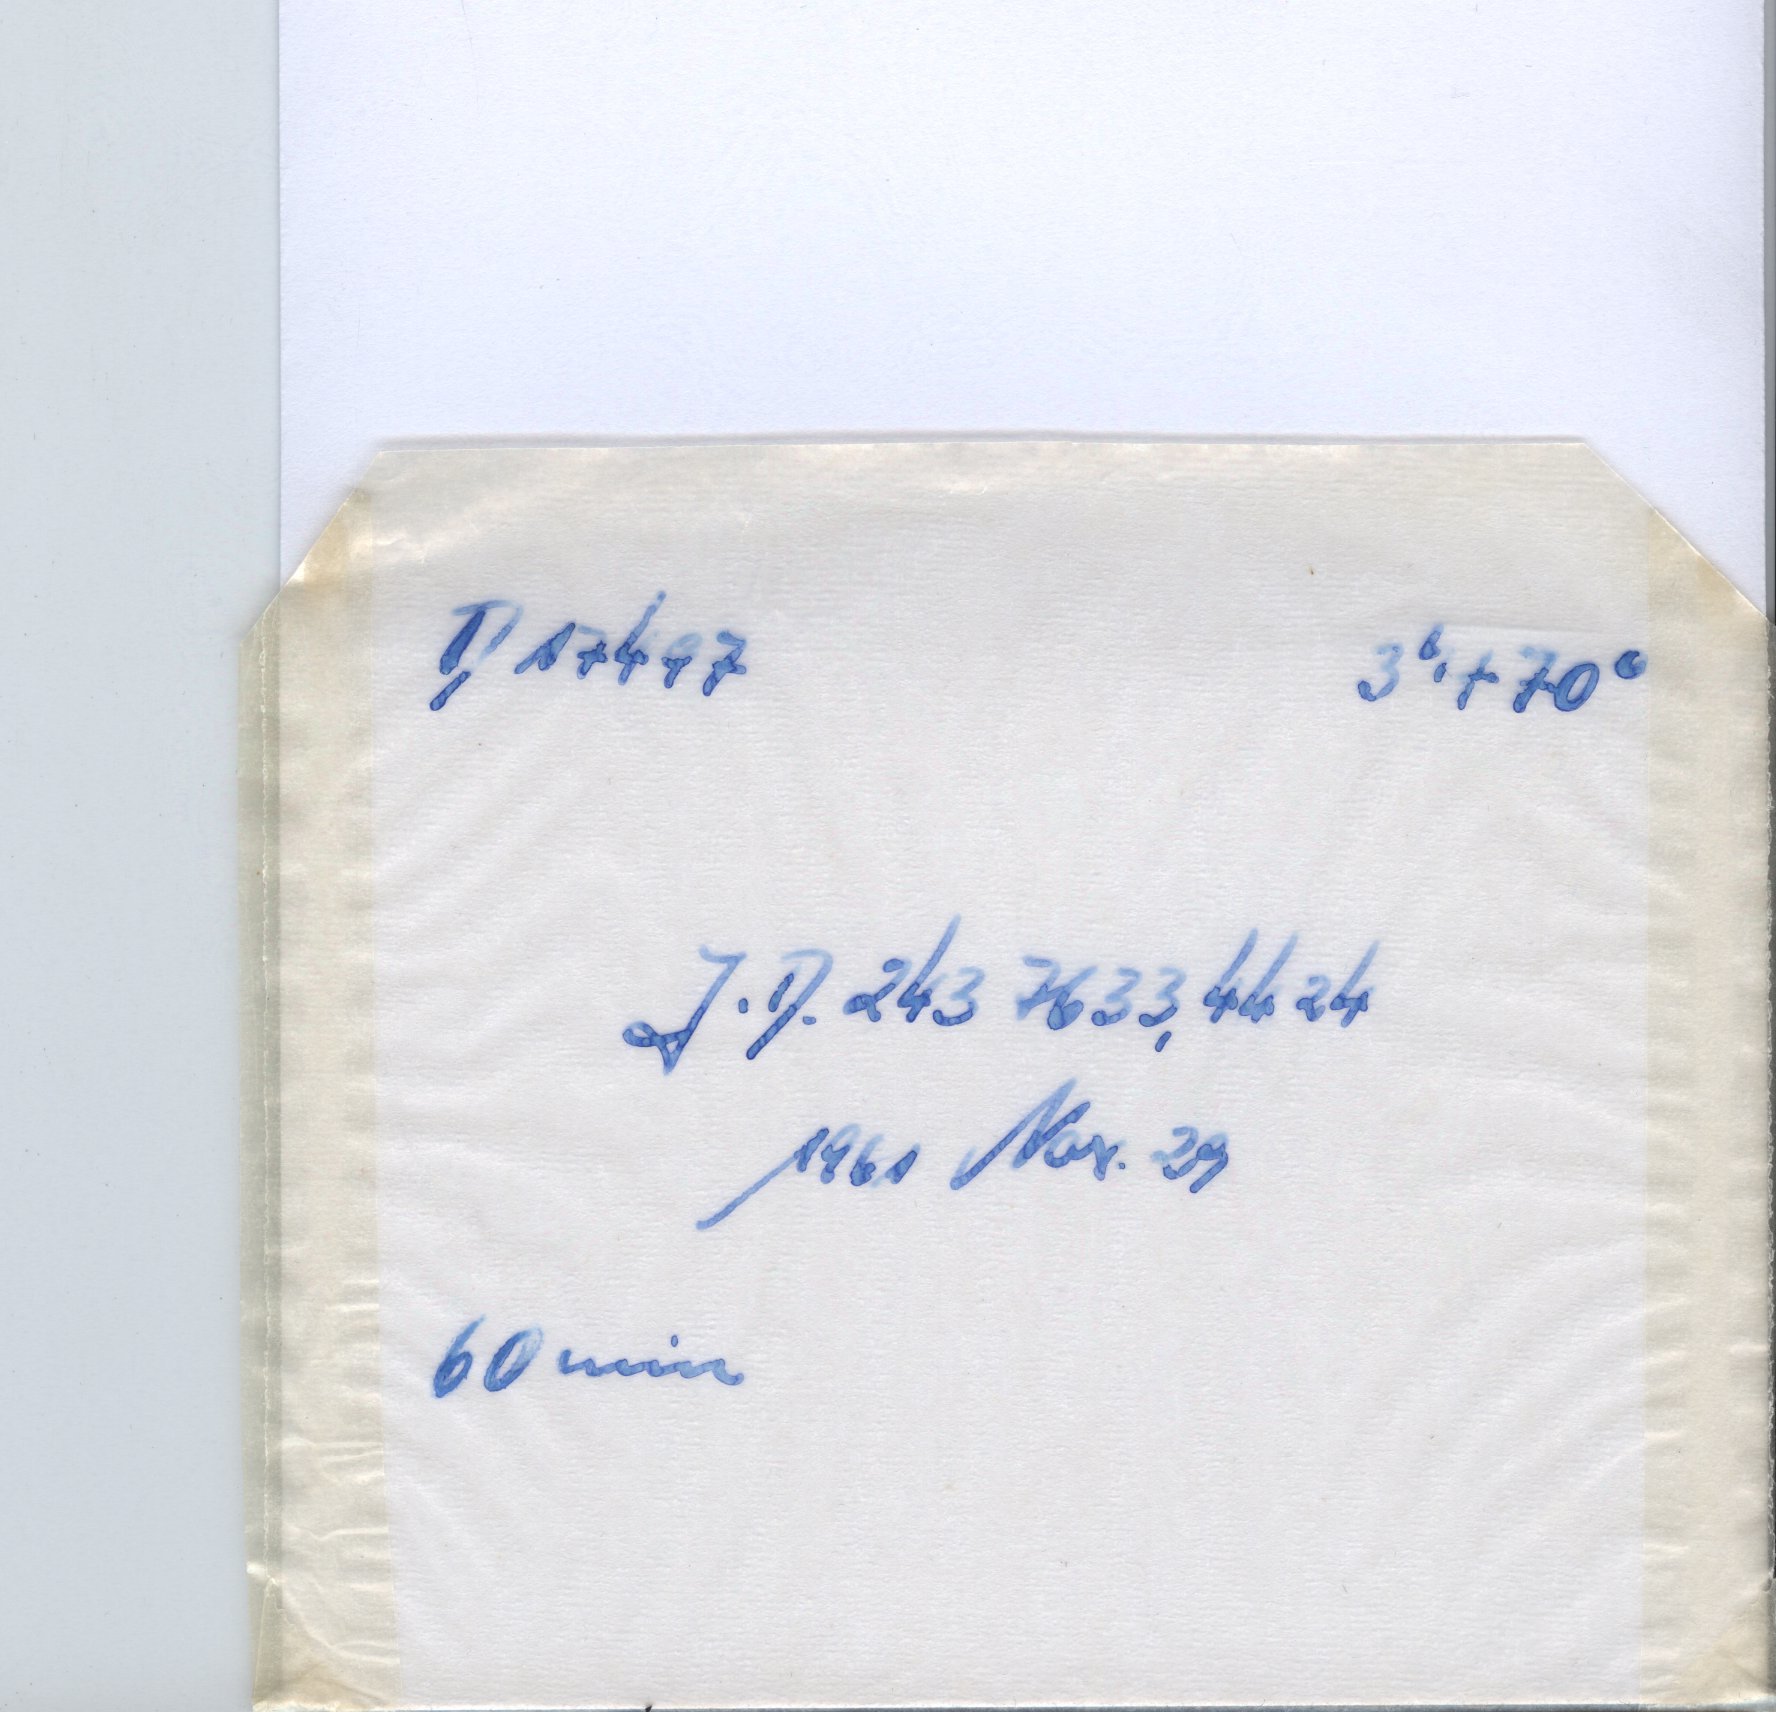 D 17497 3ʰ, +70°
J.D. 243 7633,4424
1961 Nov. 29
60 min